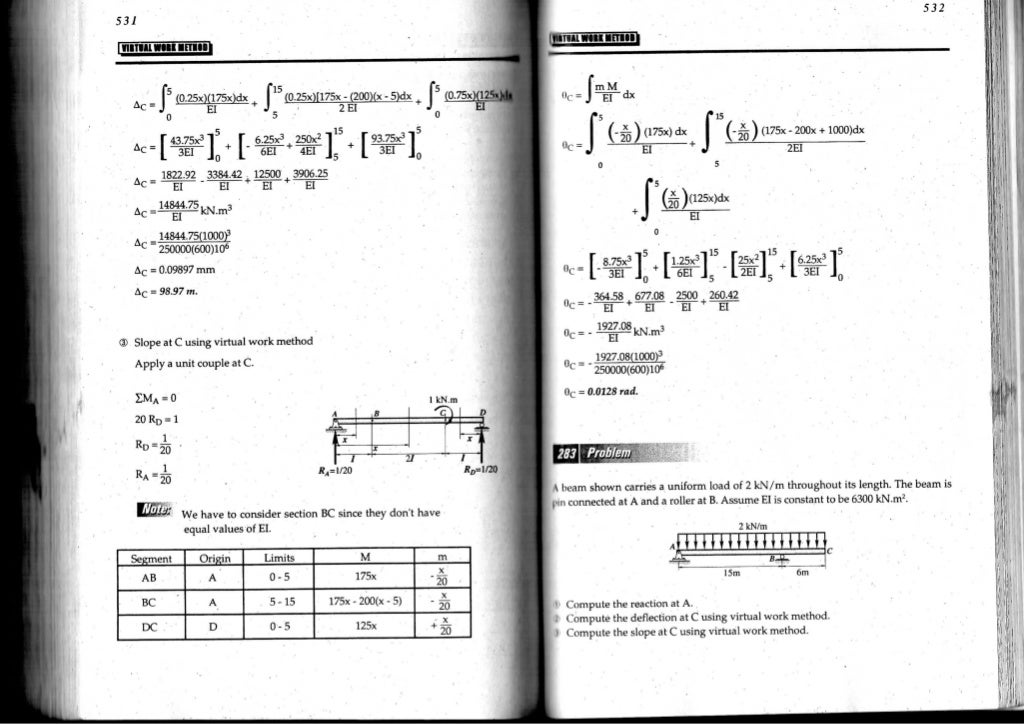 531
VIRTUAL WORK METHOD
Δc = ∫₀⁵ (0.25x)(175x)dx / EI + ∫₅¹⁵ (0.25x)[175x - (200)(x - 5)dx / 2 EI + ∫₀⁵ (0.75x)(125x)dx / EI
Δc = [ 43.75x³ / 3EI ]₀⁵ + [ - 6.25x³ / 6EI + 250x² / 4EI ]₅¹⁵ + [ 93.75x³ / 3EI ]₀⁵
Δc = 1822.92 / EI - 3384.42 / EI + 12500 / EI + 3906.25 / EI
Δc = 14844.75 / EI kN.m³
Δc = 14844.75(1000)³ / 250000(600)10⁶
Δc = 0.09897 mm
Δc = 98.97 m.
③ Slope at C using virtual work method
Apply a unit couple at C.
ΣM_A = 0
20 R_D = 1
R_D = 1 / 20
R_A = 1 / 20
1 kN.m
A B C D
x x x
l 2l l
R_A=1/20 R_D=1/20
Note: We have to consider section BC since they don't have
equal values of EI.
Segment Origin Limits M m
AB A 0 - 5 175x - x / 20
BC A 5 - 15 175x - 200(x - 5) - x / 20
DC D 0 - 5 125x + x / 20
532
VIRTUAL WORK METHOD
θc = ∫ m M / EI dx
θc = ∫₀⁵ (- x / 20) (175x) dx / EI + ∫₅¹⁵ (- x / 20) (175x - 200x + 1000)dx / 2EI
+ ∫₀⁵ (x / 20)(125x)dx / EI
θc = [ - 8.75x³ / 3EI ]₀⁵ + [ 1.25x³ / 6EI ]₅¹⁵ - [ 25x² / 2EI ]₅¹⁵ + [ 6.25x³ / 3EI ]₀⁵
θc = - 364.58 / EI + 677.08 / EI - 2500 / EI + 260.42 / EI
θc = - 1927.08 / EI kN.m³
θc = - 1927.08(1000)³ / 250000(600)10⁶
θc = 0.0128 rad.
283 Problem
A beam shown carries a uniform load of 2 kN/m throughout its length. The beam is
pin connected at A and a roller at B. Assume EI is constant to be 6300 kN.m².
2 kN/m
A B C
15m 6m
① Compute the reaction at A.
② Compute the deflection at C using virtual work method.
③ Compute the slope at C using virtual work method.